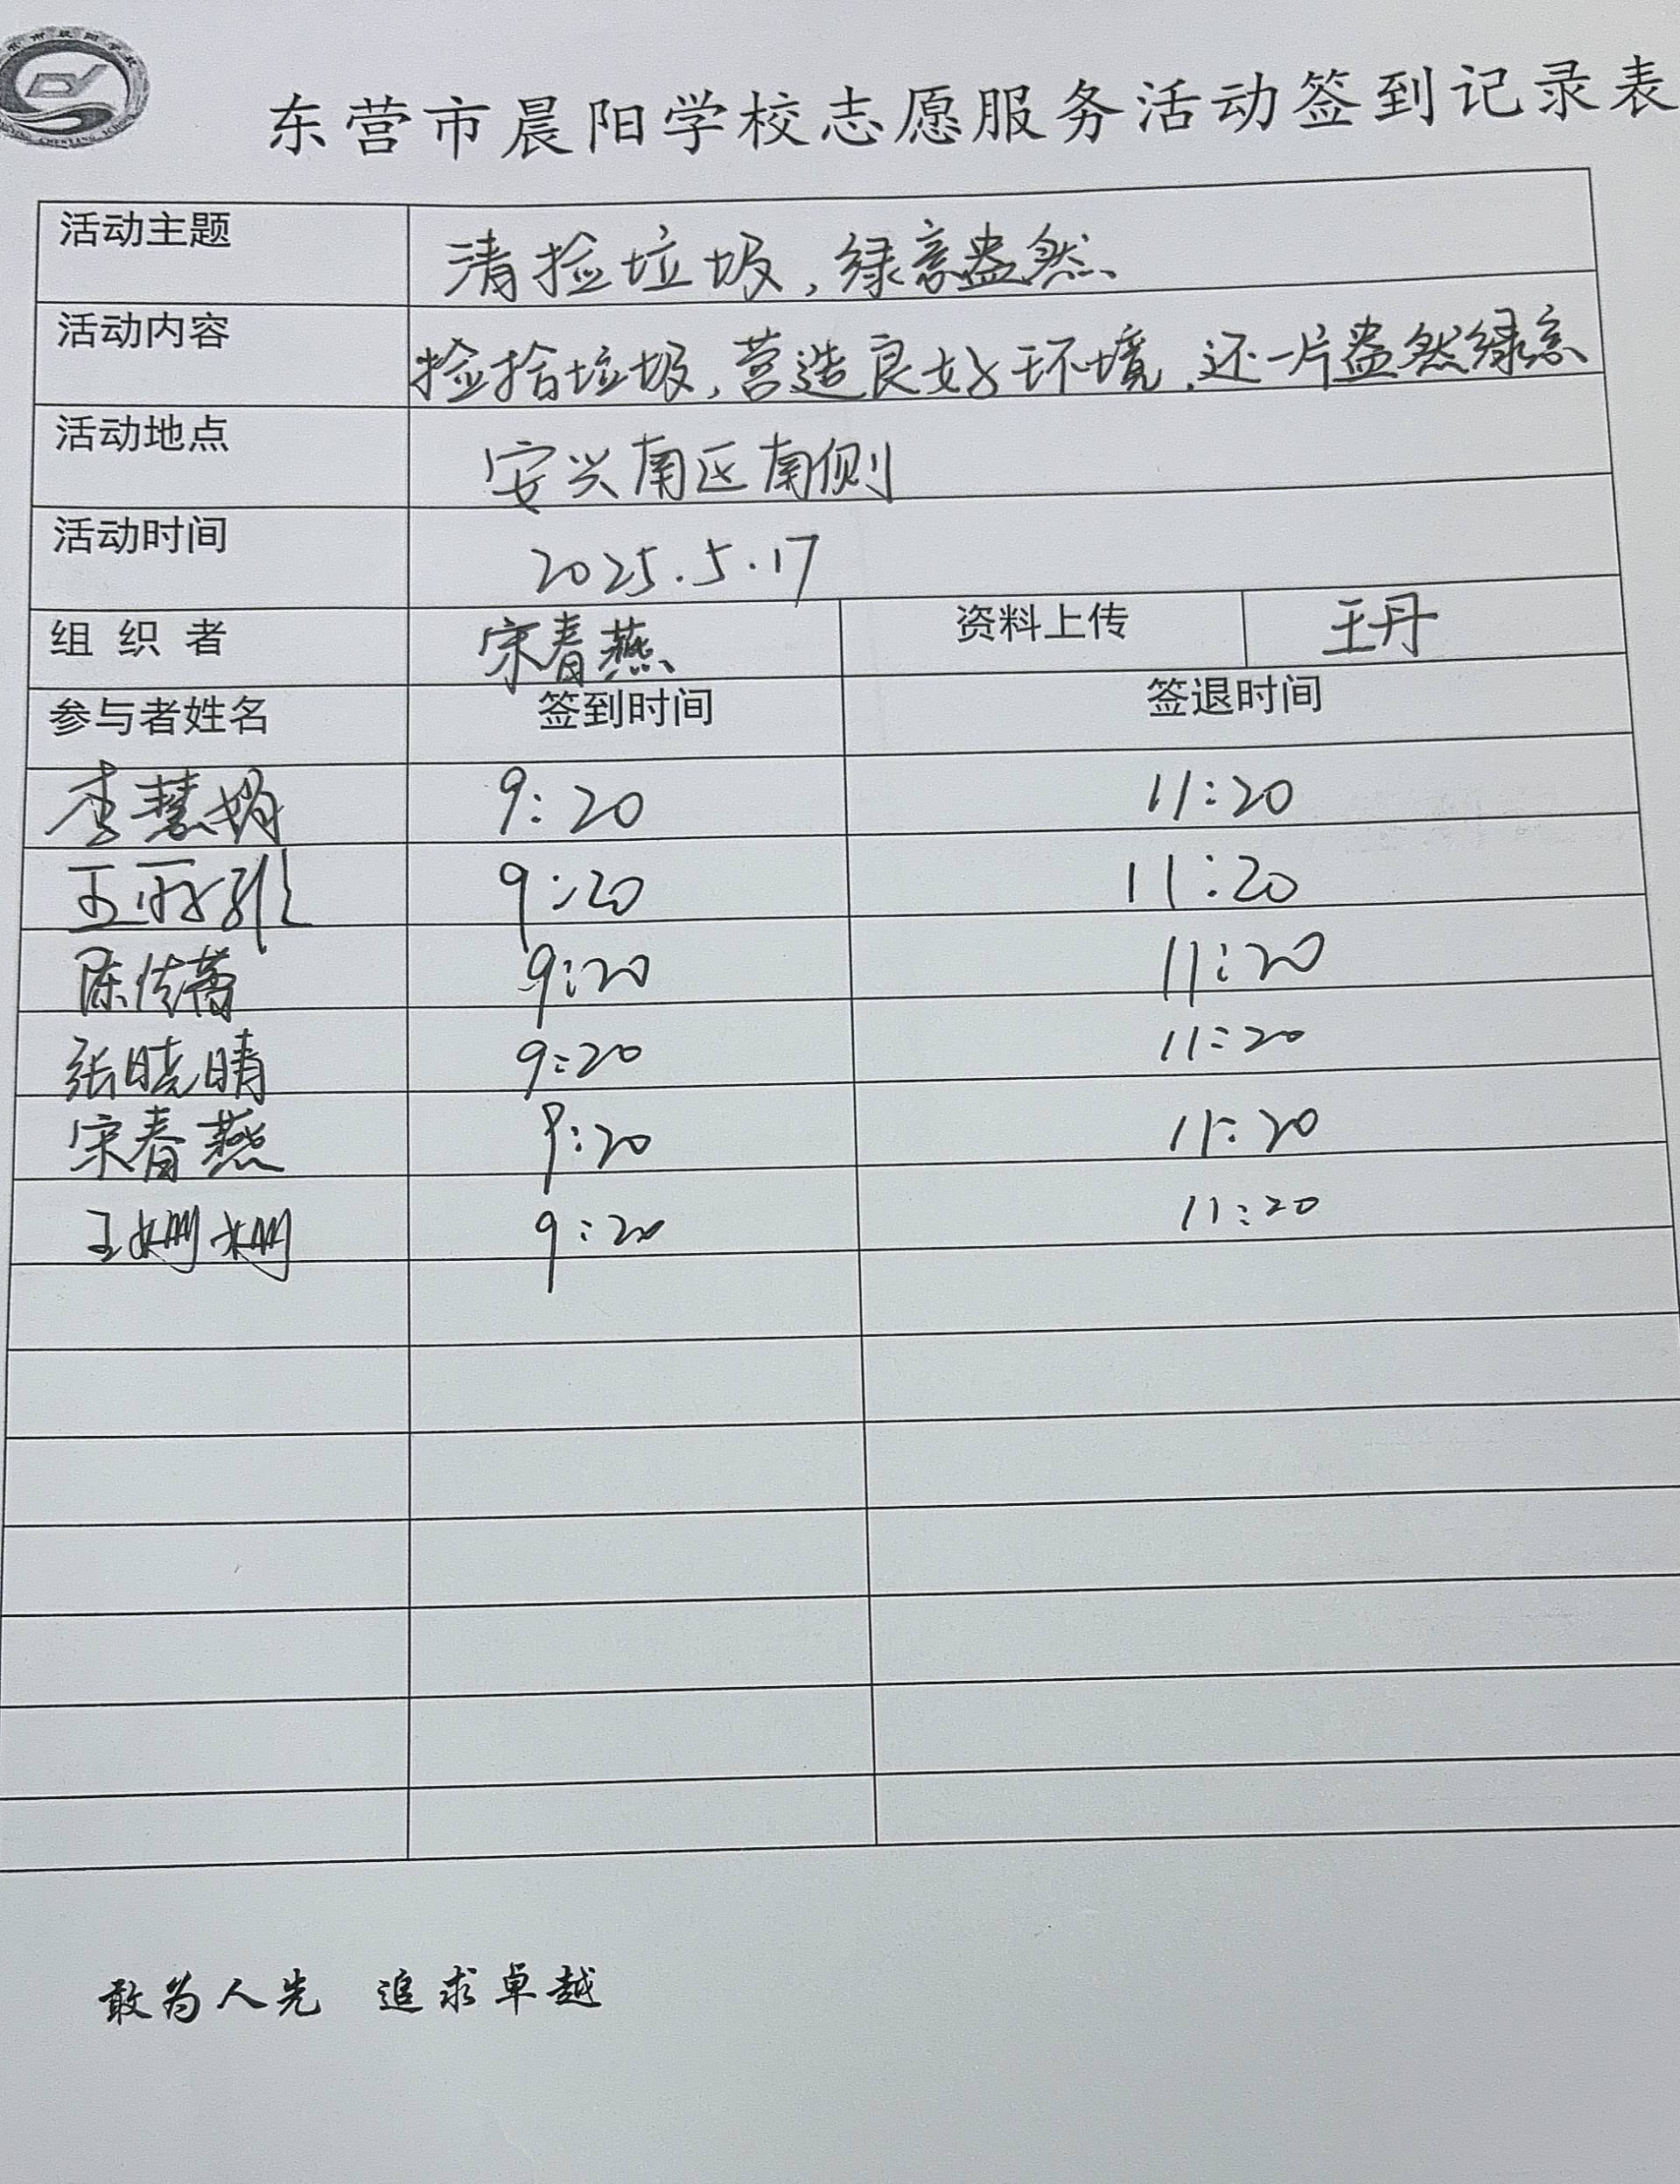 东营市晨阳学校志愿服务活动签到记录表
活动主题 清捡垃圾，绿意盎然
活动内容 捡拾垃圾，营造良好环境，还一片盎然绿意
活动地点 安兴南区南侧
活动时间 2025.5.17
组织者 宋春燕 资料上传 王丹
参与者姓名 签到时间 签退时间
李慧娟 9:20 11:20
王 9:20 11:20
陈传 9:20 11:20
张晓晴 9:20 11:20
宋春燕 9:20 11:20
王姗姗 9:20 11:20
敢为人先 追求卓越